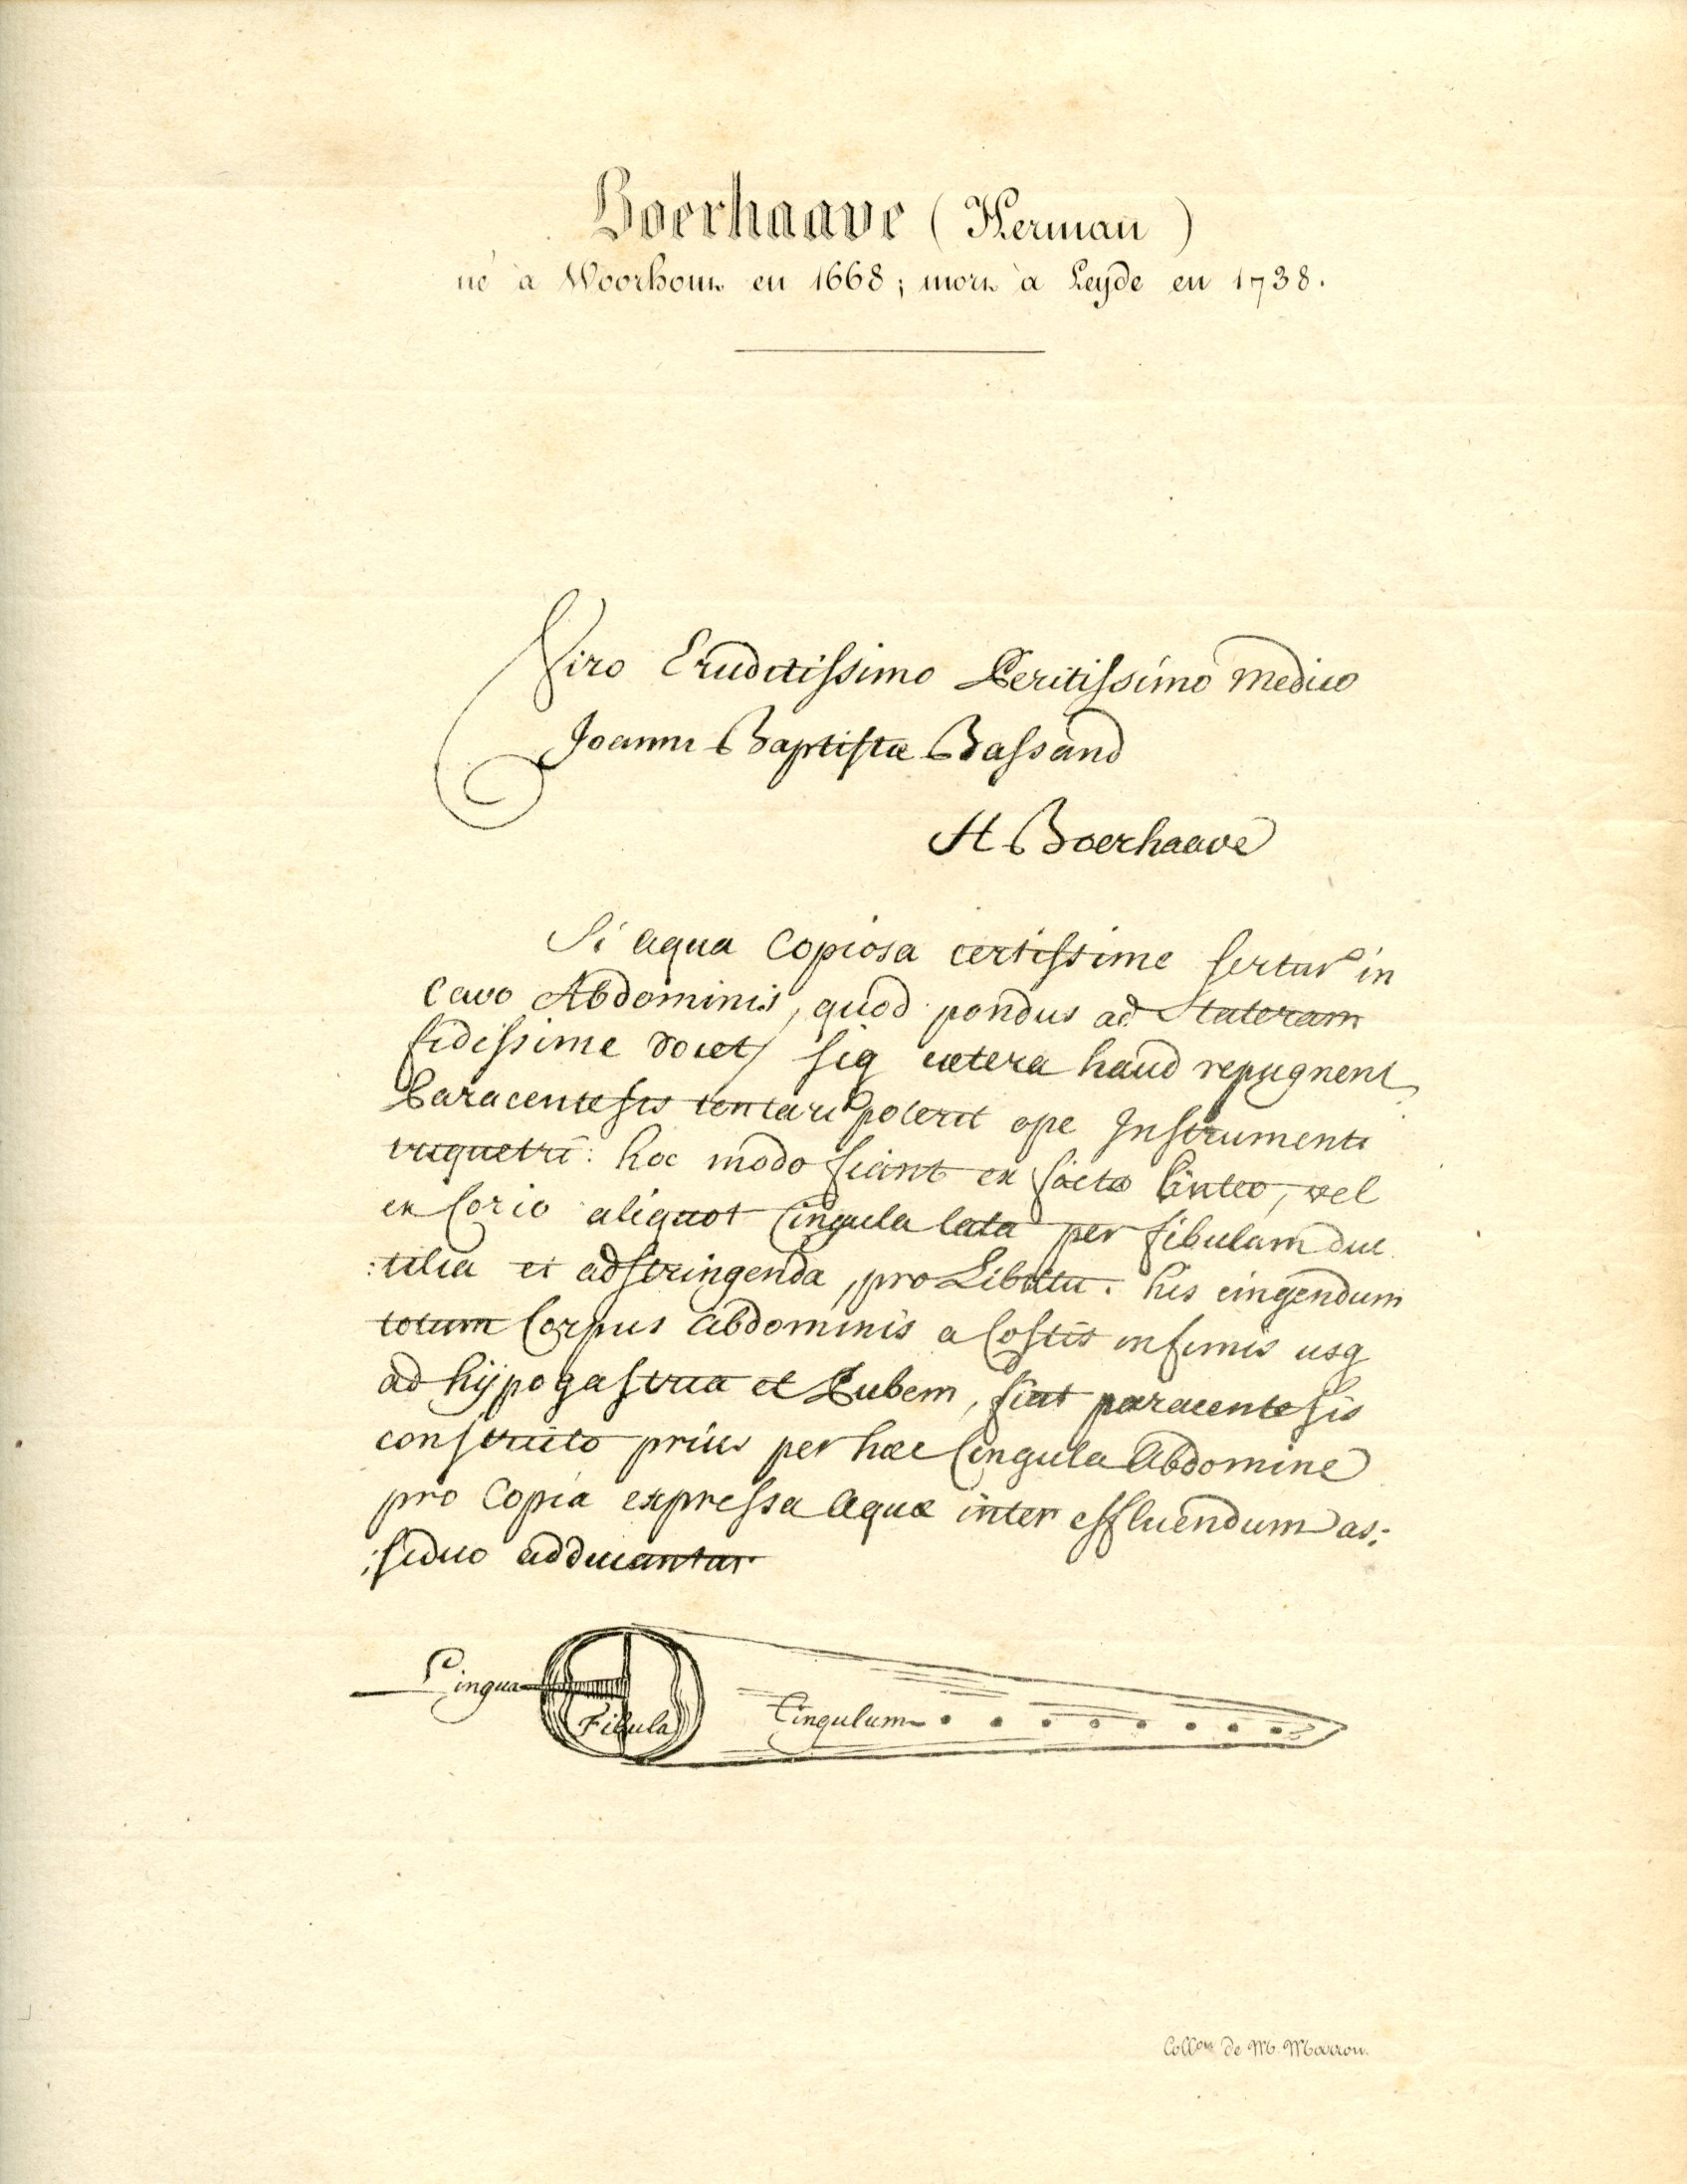 Boerhaave (Herman)
né à Woorhout en 1668; mort à Leyde en 1738.
Viro Eruditissimo Peritissimo Medico
Joanni Baptistæ Bassand
H Boerhaave
Si aqua Copiosa certissime fertur in
Cavo Abdominis, quod pondus ad Stateram
fidissime docet, siq cætera haud repugnent
Paracentesis tentari poterit ope Instrumenti
triquetri: hoc modo fiant ex facto linteo, vel
ex Corio aliquot Cingula lata per fibulam duc
:tilia et adstringenda, pro Libitu. his cingendum
totum Corpus abdominis a Costis infimis usq
ad hypogastria et Pubem, fiat paracentesis
constricto prius per hæc Cingula Abdomine
pro Copia expressa Aquæ inter effluendum as:
:siduo adducantur
Lingua
Fibula
Cingulum
Collon de M. Marron.